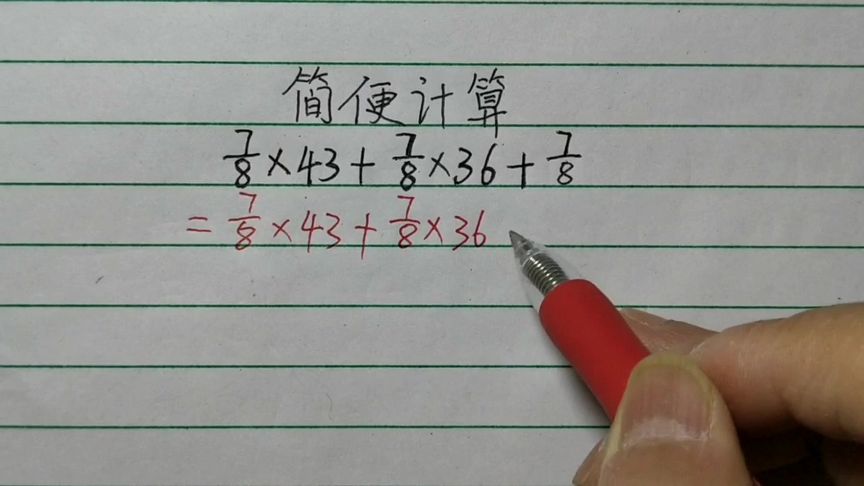 简便计算
7/8×43+7/8×36+7/8
=7/8×43+7/8×36